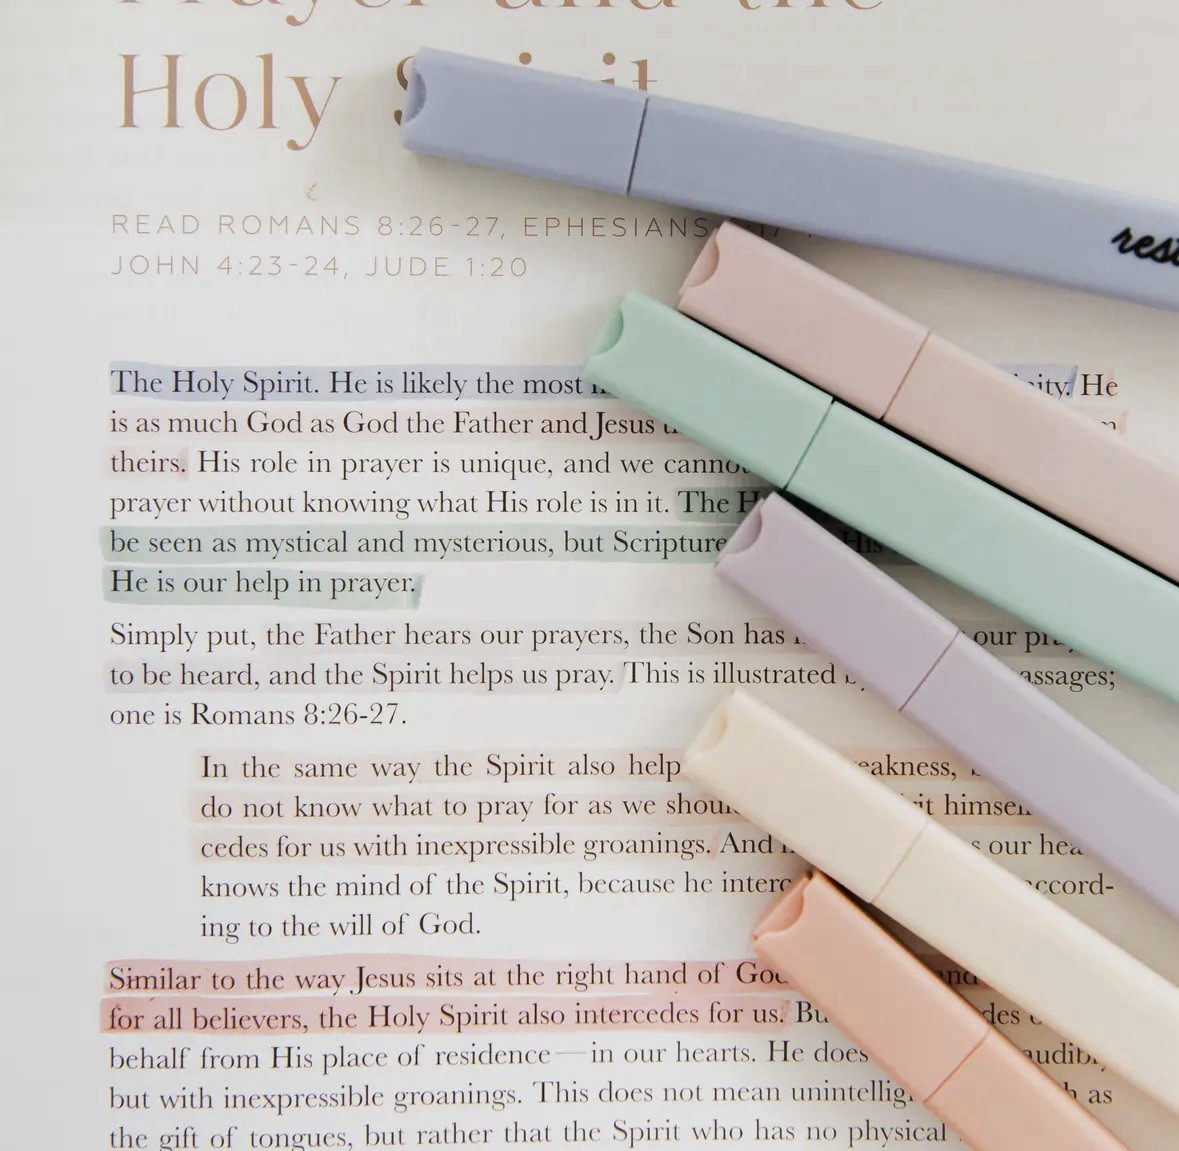 Prayer and the
Holy Spirit
READ ROMANS 8:26-27, EPHESIANS
JOHN 4:23-24, JUDE 1:20
rest
The Holy Spirit. He is likely the most He
is as much God as God the Father and Jesus
theirs. His role in prayer is unique, and we cannot
prayer without knowing what His role is in it. The
be seen as mystical and mysterious, but Scripture His
He is our help in prayer.
Simply put, the Father hears our prayers, the Son has our
to be heard, and the Spirit helps us pray. This is illustrated passages;
one is Romans 8:26-27.
In the same way the Spirit also help weakness,
do not know what to pray for as we should himself
cedes for us with inexpressible groanings. And our
knows the mind of the Spirit, because he accord-
ing to the will of God.
Similar to the way Jesus sits at the right hand of God
for all believers, the Holy Spirit also intercedes for us. But
behalf from His place of residence—in our hearts. He does
but with inexpressible groanings. This does not mean as
the gift of tongues, but rather that the Spirit who has no physical